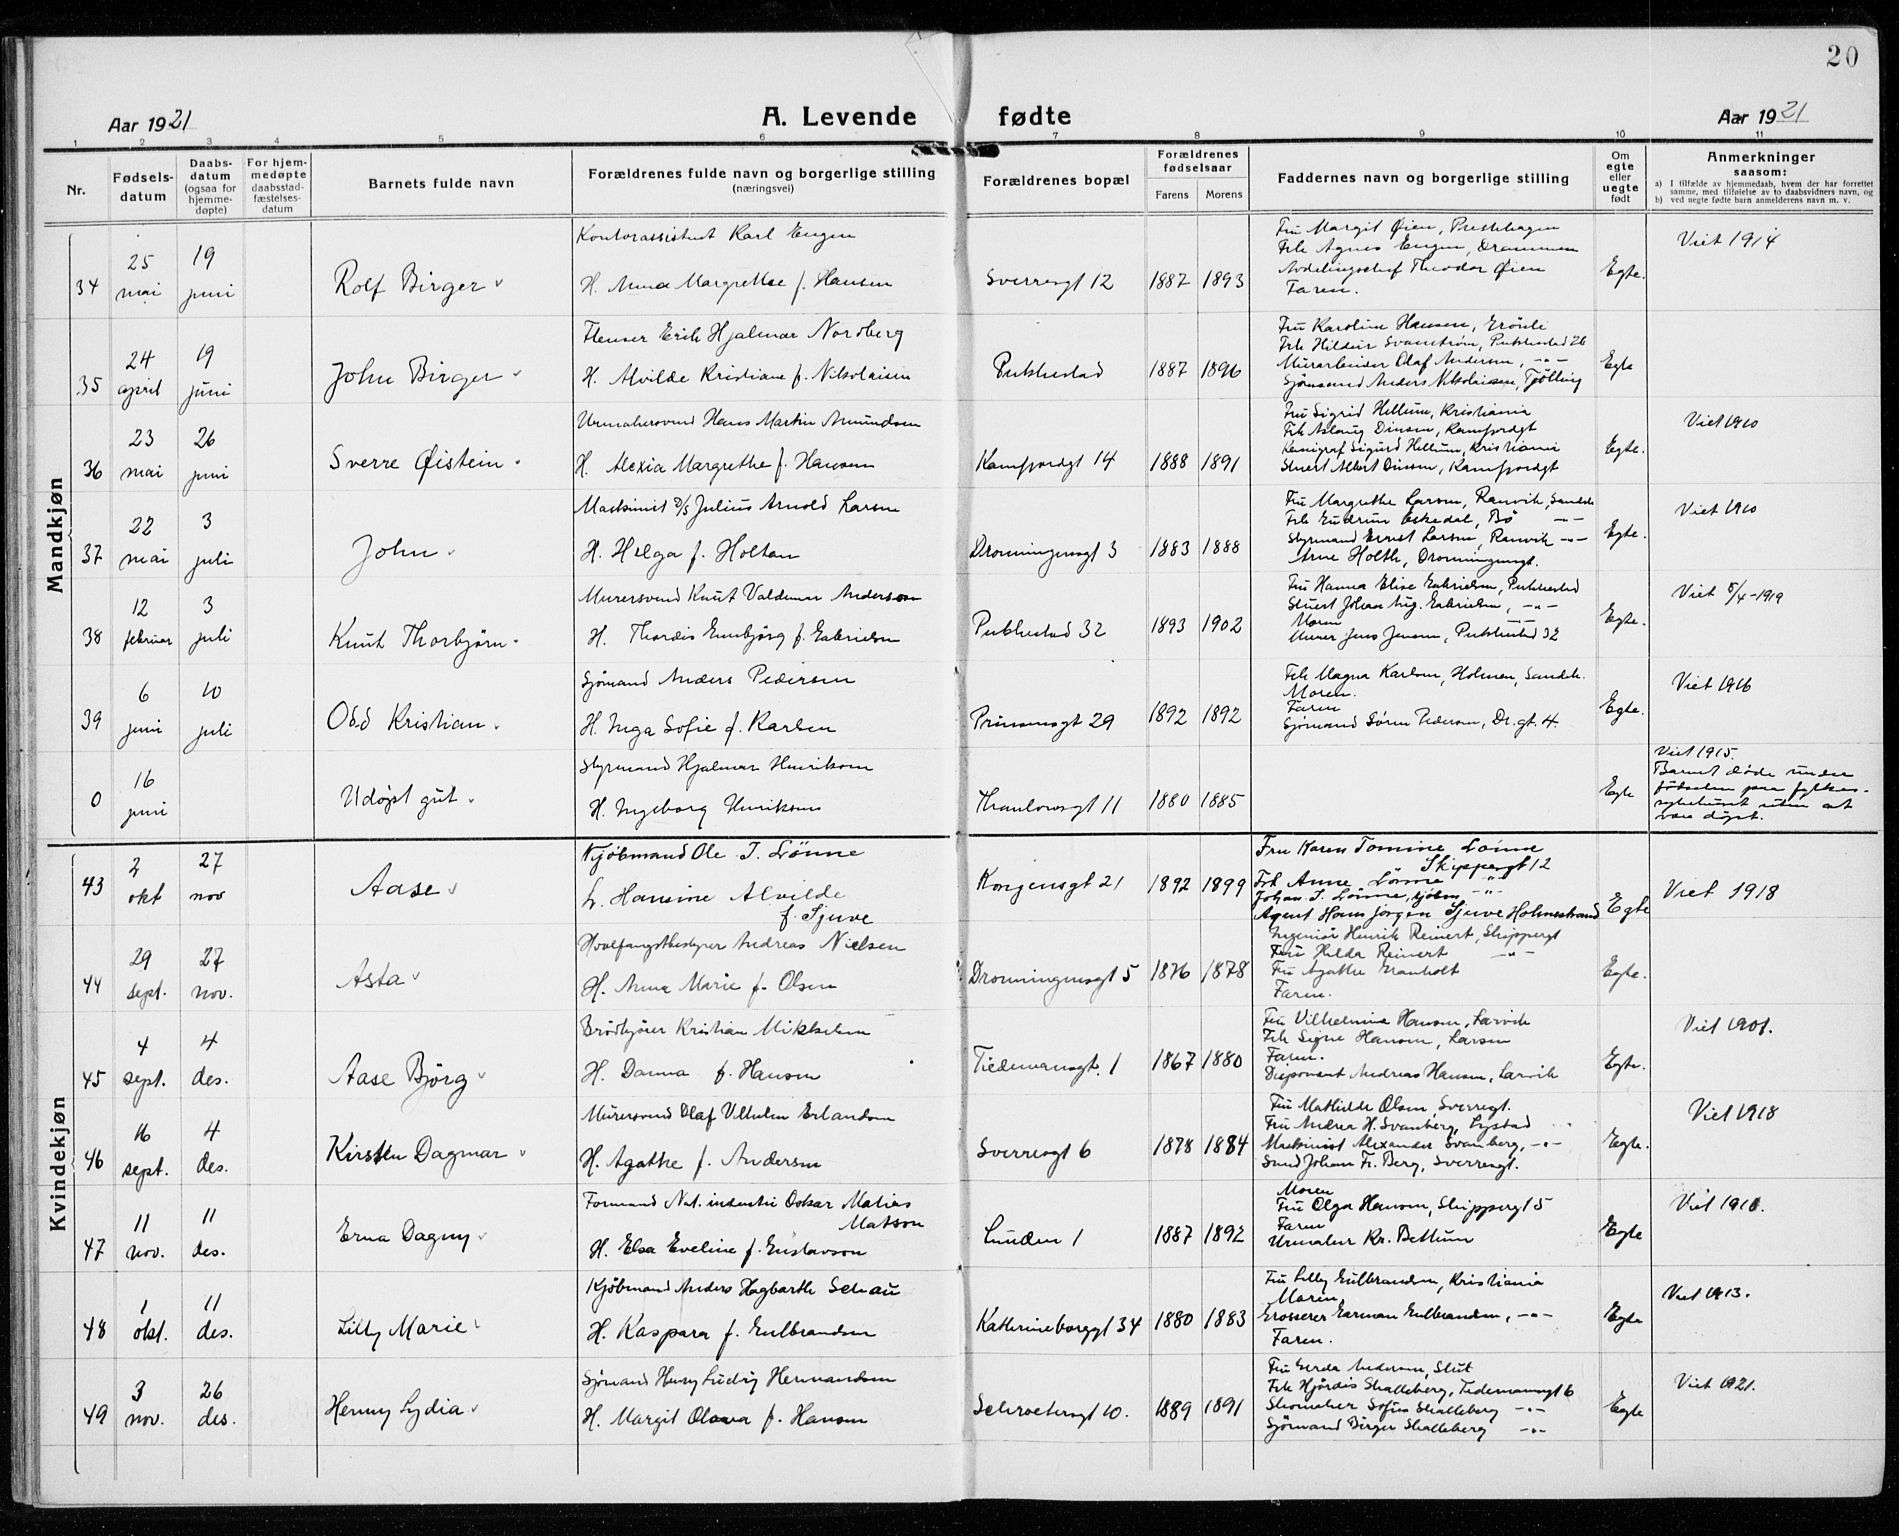 20
Aar 1921
A. Levende fødte
Aar 1921
1 2 3 4 5 6 7 8 9 10 11
Nr.
Fødsels-
datum
Daabs-
datum
(ogsaa for
hjemme-
døpte)
For hjem-
medøpte
daabsstad-
fæstelses-
datum
Barnets fulde navn
Forældrenes fulde navn og borgerlige stilling
(næringsvei)
Forældrenes bopæl
Forældrenes
fødselsaar
Farens Morens
Faddernes navn og borgerlige stilling
Om
egte
eller
uegte
født
Anmerkninger
saasom:
a) I tilfælde av hjemmedaab, hvem der har forrettet
samme, med tilføielse av to daabsvidners navn, og
b) ved uegte fødte barn anmelderens navn m. v.
Mandkjøn
34
25
mai
19
juni
Rolf Birger
Kontorassistent Karl Engen
H. Anna Margrethe f. Hansen
Sverresgt 12
1887 1893
Fru Margit Øien, Prestehagen
Frk Agnes Engen, Drammen
Avdelingschef Theodor Øien
Faren.
Egte.
Viet 1914
35
24
april
19
juni
John Birger
Flenser Erik Hjalmar Nordberg
H. Alvilde Kristiane f. Nikolaisen
Pukkestad
1887 1896
Fru Karoline Hansen,
Frk Svanstrøm, Pukkestad 26
Murarbeider Olaf Andersen, -"-
Sjømand Anders Nikolaisen, Tjølling
Egte
36
23
mai
26
juni
Sverre Øistein
Urmakersvend Hans Martin Amundsen
H. Alexia Margrethe f. Hansen
Kamfjordgt 14
1888 1891
Fru Sigrid Hellum, Kristiania
Frk Aslaug Dinsen, Kamfjordgt
Kemigraf Sigurd Hellum, Kristiania
Stuert Albert Dinsen, Kamfjordgt
Egte.
Viet 1910
37
22
mai
3
juli
John
Maskinist Julius Arnold Larsen
H. Helga f. Holtan
Dronningensgt 3
1883 1888
Fru Margrethe Larsen, Ranvik, Sandeh
Frk Gudrun Eskedal, Bø -"-
Styrmand Ernst Larsen, Ranvik -"-
Arne Holth, Dronningensgt.
Egte.
Viet 1910
38
12
februar
3
juli
Knut Thorbjørn
Murersvend Knut Valdemar Anderson
H. Thordis Ennbjørg f. Gabrielsen
Pukkestad 32
1893 1902
Fru Hanna Elise Gabrielsen, Pukkestad
Stuert Johan Aug. Gabrielsen, -"-
Moren
Murer Jens Jensen, Pukkestad 32
Egte.
Viet 5/4-1919
39
6
juni
10
juli
Odd Kristian
Sjømand Anders Pedersen
H. Inga Sofie f. Karlsen
Prinsensgt 29
1892 1892
Frk Magna Karlsen, Holmen, Sandeh.
Moren.
Faren
Sjømand Søren Pedersen, Dr. gt. 4.
Egte.
Viet 1916
0
16
juni
Udøpt gut
Styrmand Hjalmar Henriksen
H. Ingeborg Henriksen
Thaulowsgt 11
1880 1885
Egte
Viet 1915.
Barnet døde under
fødselen paa fylkes-
sykehuset uten at
være døpt.
Kvindekjøn
43
2
okt
27
nov
Aase
Kjøbmand Ole T. Lønne
h. Hansine Alvilde
f. Sjuve
Kongensgt 21
1892 1899
Fru Karen Tomine Lønne
Skippergt 12
Frk Anne Lønne -"-
Johan T. Lønne, kjøbm -"-
Agent Hans Jørgen Sjuve Holmestrand
Egte
Viet 1918
44
29
sept.
27
nov.
Asta
Hvalfangstbestyrer Andreas Nielsen
H. Anna Marie f. Olsen
Dronningensgt 5
1876 1878
Ingeniør Henrik Reinert, Skippergt
Fru Hilda Reinert -"-
Fru Agathe Granholt
Faren.
Egte.
45
4
sept.
4
des.
Aase Bjørg
Brødkjører Kristian Mikkelsen
H. Danna f. Hansen
Tidemansgt. 1
1867 1880
Fru Vilhelmine Hansen, Larvik
Frk Signe Hansen, Larsen
Faren.
Disponent Andreas Hansen, Larvik
Egte.
Viet 1901.
46
16
sept.
4
des.
Kirsten Dagmar
Murersvend Olaf Vilhelm Erlandsen
H. Agathe f. Andersen
Sverresgt 6
1878 1884
Fru Mathilde Olsen, Sverresgt.
Fru Andrea H. Svanberg, Lystad
Maskinist Alexander Svanberg, -"-
Svend Johan Fr. Berg, Sverresgt.
Egte.
Viet 1918
47
11
nov.
11
des.
Erna Dagny
Formand Nat. industri Oskar Matias
Matson
H. Elsa Eveline f. Gustavson
Lunden 1
1887 1892
Moren
Fru Olga Hansen, Skippergt 5
Faren
Urmaker Kr. Bettum
Egte
Viet 1911.
48
1
okt.
11
des.
Lilly Marie
Kjøbmand Anders Hagbarth Schau
H. Kaspara f. Gulbrandsen
Kathrineborggt 34
1880 1883
Fru Lilly Gulbrandsen, Kristiania
Moren
Grosserer Herman Gulbrandsen, -"-
Faren.
Egte
Viet 1913.
49
3
nov.
26
des.
Henny Lydia
Sjømand Henry Ludvig Hermandsen
H. Margit Olava f. Hansen
Schrøtersgt 10.
1889 1891
Fru Gerda Andersen, Slut
Frk Hjørdis Skalleberg, Tidemansgt 6
Skomaker Sofus Skalleberg -"-
Sjømand Birger Skalleberg -"-
Egte
Viet 1921.